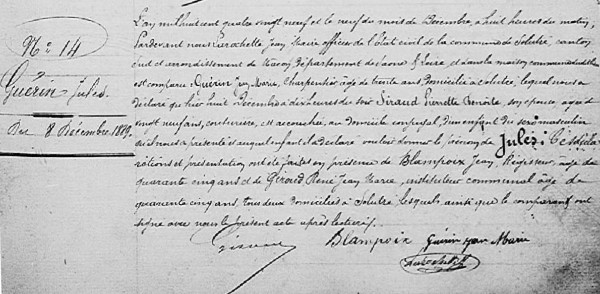 No 14
Guérin Jules
Du 8 Décembre 1889.
L'an mil huit cent quatre vingt neuf et le neuf du mois de Décembre, à huit heures du matin,
Pardevant nous Larochette Jean Marie officier de l'état civil de la commune de Solutré, canton
sud et arrondissement de Mâcon Département de Saône & Loire, et dans la maison commune
est comparu Guérin Jean Marie, Charpentier âgé de trente ans domicilié à Solutré, lequel nous a
déclaré que hier huit Décembre à dix heures du soir Siraud Pierrette Benoite, son épouse, âgée de
vingt neuf ans, couturière, est accouchée, au domicile conjugal, d'un enfant du sexe masculin
qu'il nous a présenté et auquel enfant il a déclaré vouloir donner le prénom de Jules. Ces décla
rations et présentation ont été faites en présence de Blampoix Jean, Régisseur, âgé de
quarante cinq ans et de Giroud René Jean Marie, instituteur communal âgé de
quarante cinq ans, tous deux domiciliés à Solutré, lesquels, ainsi que le comparant ont
signé avec nous le présent acte après lecture.
Blampoix Guérin Jean Marie
Larochette